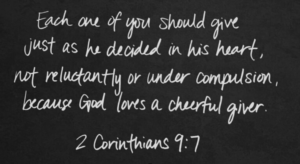 Each one of you should give
just as he decided in his heart,
not reluctantly or under compulsion,
because God loves a cheerful giver.
2 Corinthians 9:7